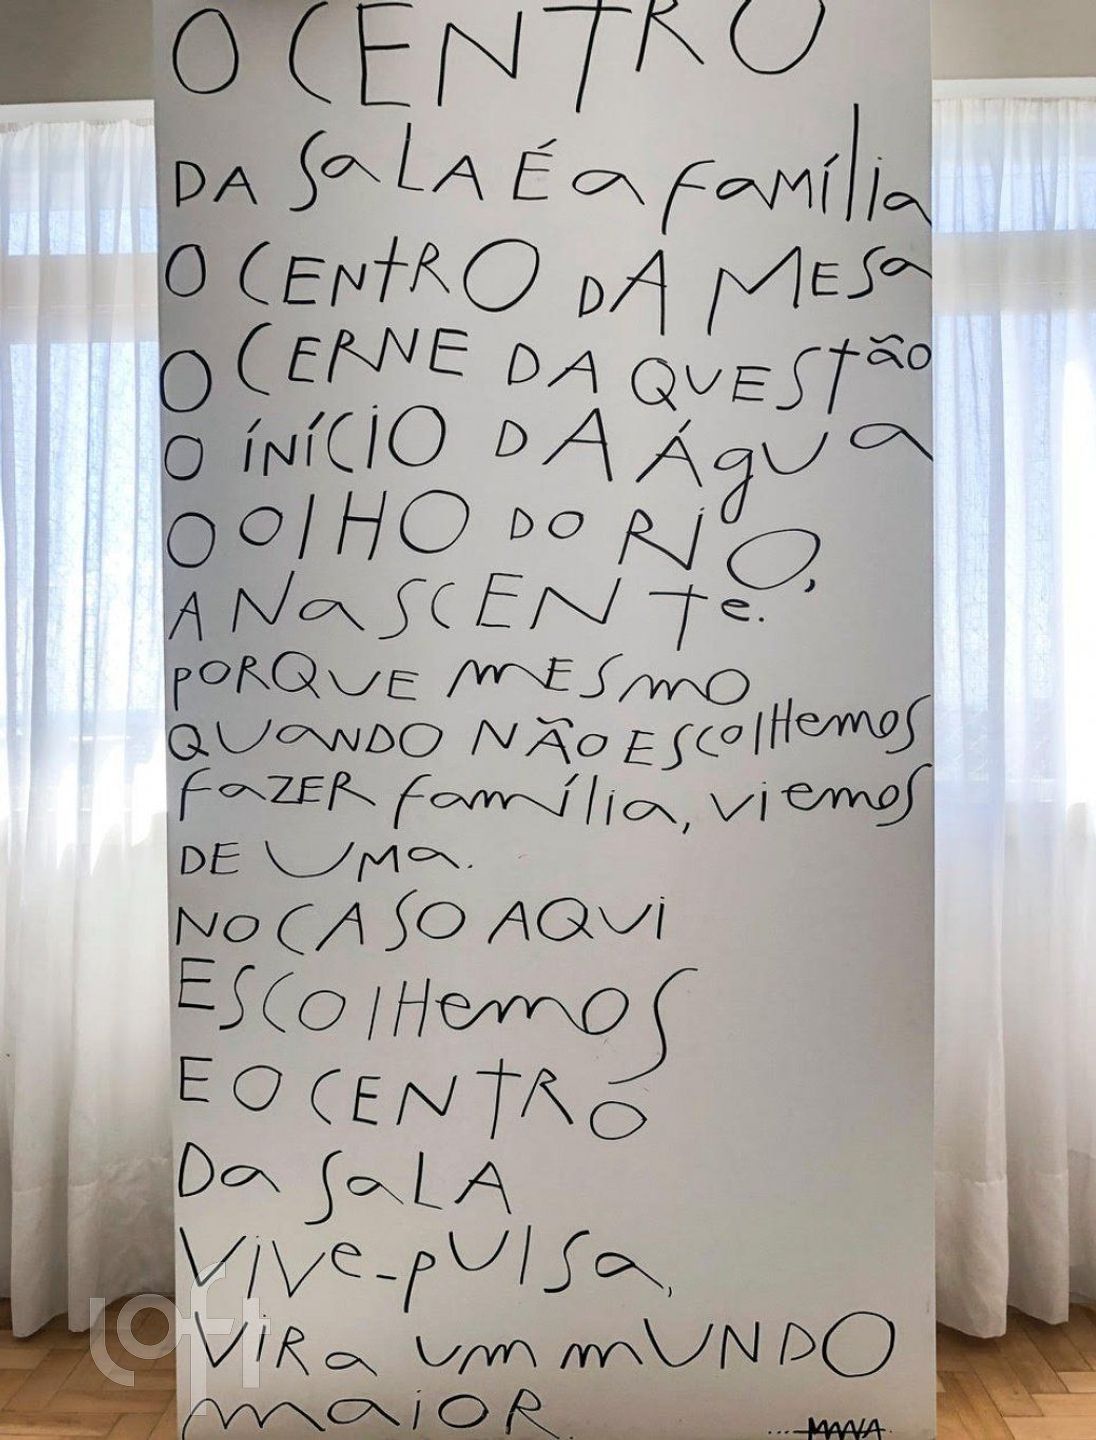 O CENTRO
DA SaLA É a famílIa
O CENTRO DA MESa
O CERNE DA QUEStão
O ÍNÍCIO DA Água
O OlHO DO RiO,
A NaSCENte.
PORQUE MESMO
QUaNDO NÃO ESColHemos
faZER família, viemos
DE UMa.
NO CASO AQUi
ESColHemos
E O CENTRO
Da SaLA
Vive-pUlSa,
VIRa um mUNDO
maiOR.
....MANA.
loft